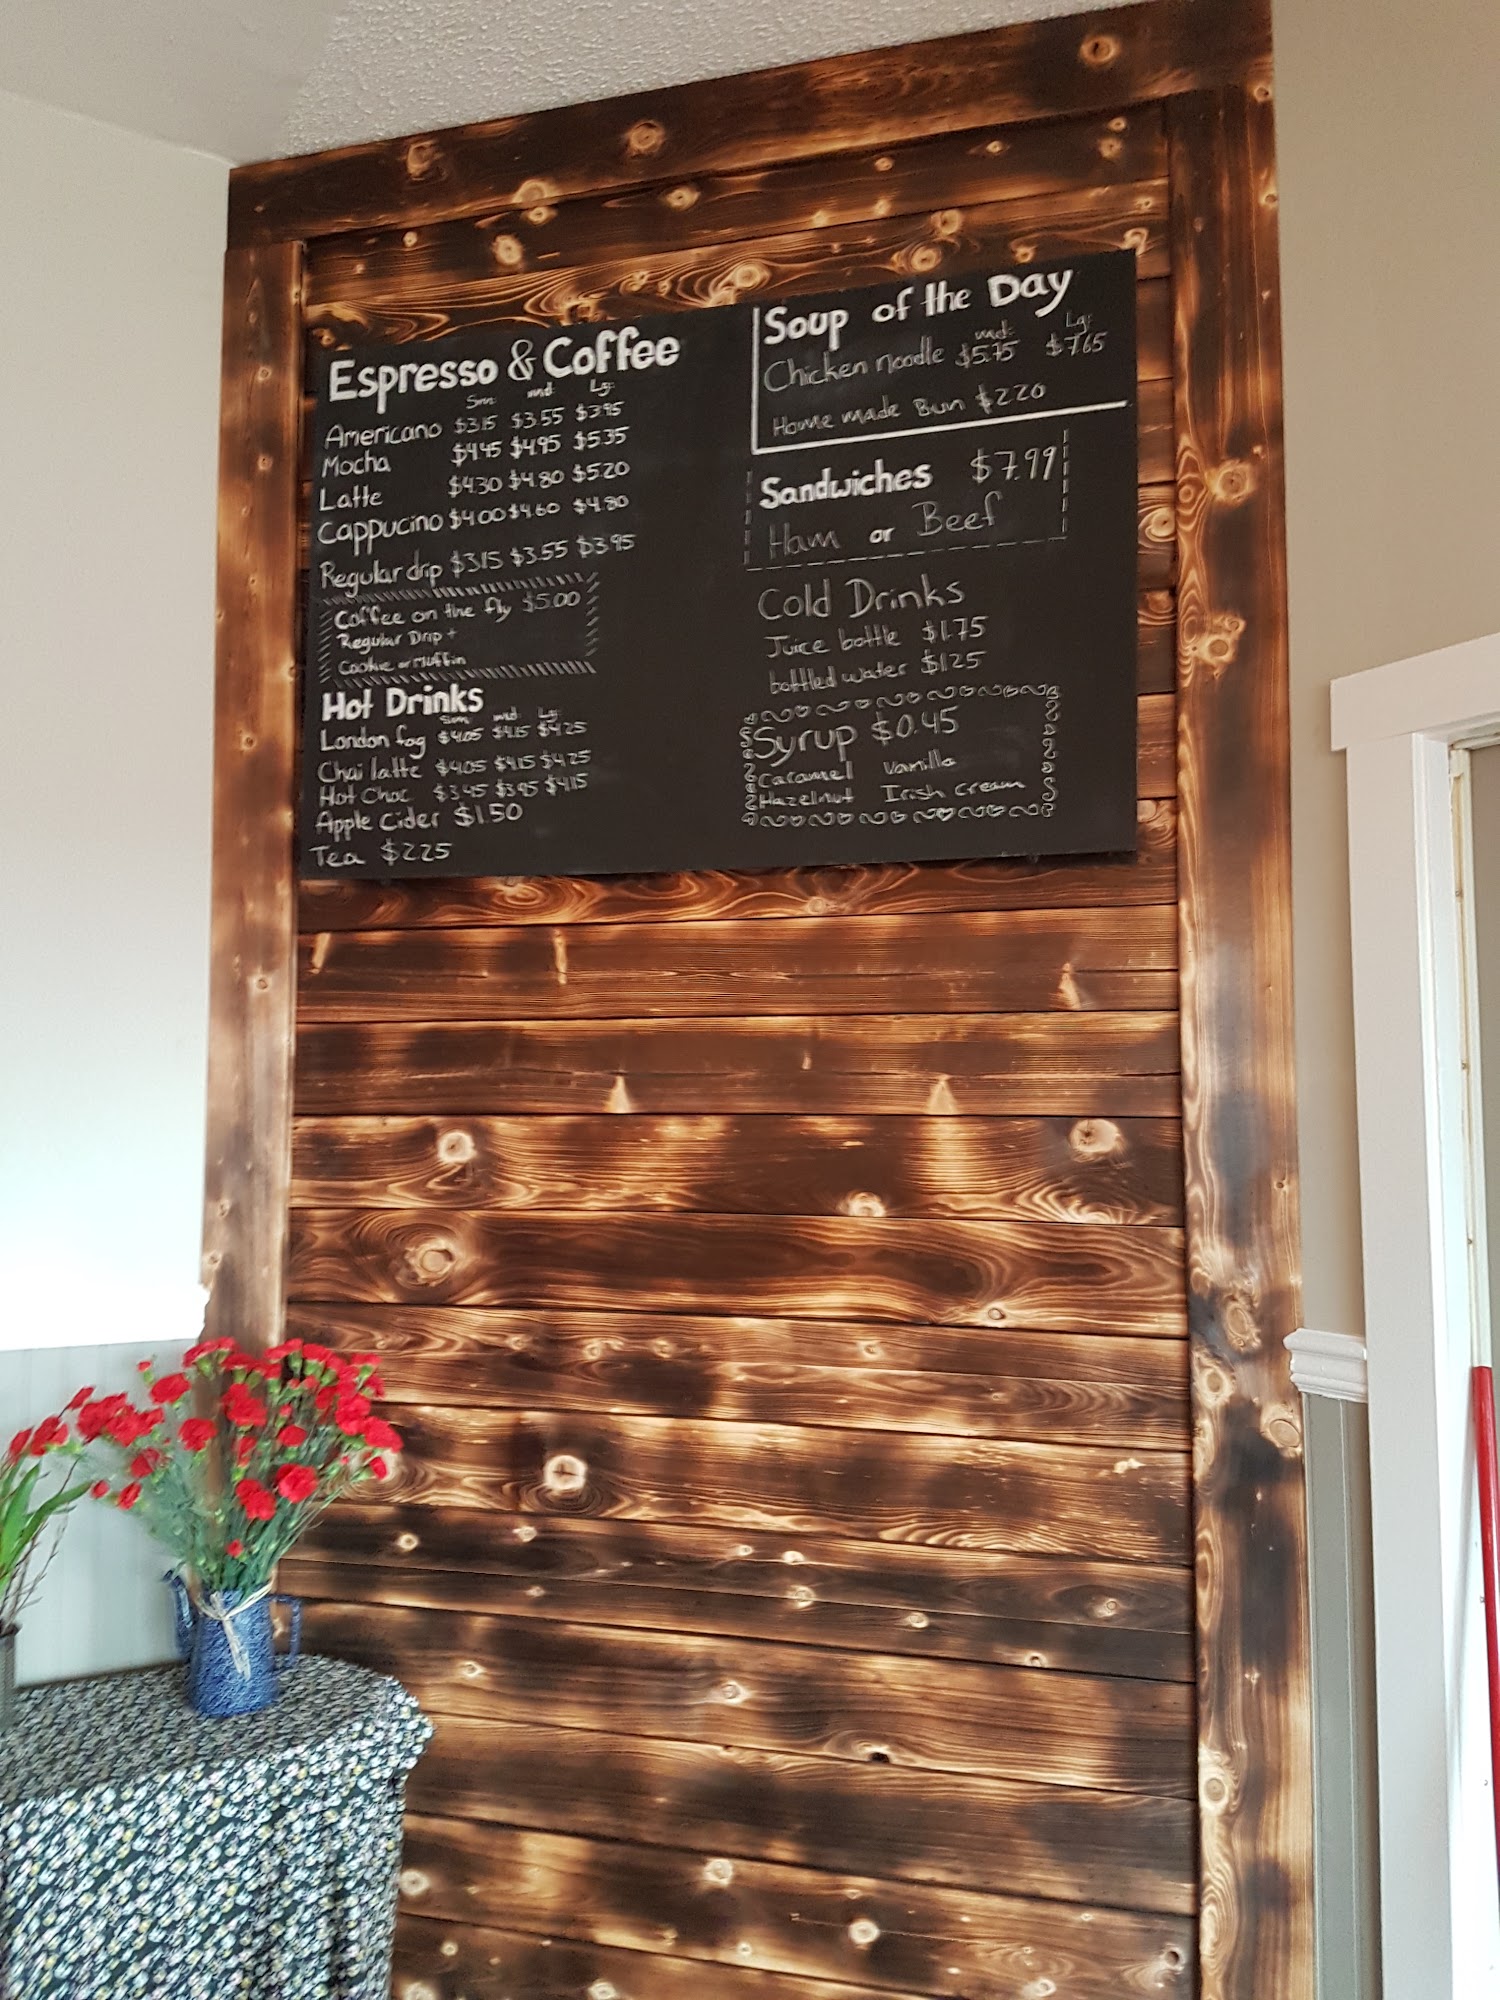 Espresso & Coffee
Sm: md: Lg:
Americano $3.15 $3.55 $3.95
Mocha $4.45 $4.95 $5.35
Latte $4.30 $4.80 $5.20
Cappucino $4.00 $4.60 $4.80
Regular drip $3.15 $3.55 $3.95
Coffee on the fly $5.00
Regular Drip +
Cookie or Muffin
Hot Drinks
Sm: md: Lg:
London fog $4.05 $4.15 $4.25
Chai latte $4.05 $4.15 $4.25
Hot Choc $3.45 $3.95 $4.15
Apple Cider $1.50
Tea $2.25
Soup of the Day
md: Lg:
Chicken noodle $5.75 $7.65
Home made Bun $2.20
Sandwiches $7.99
Ham or Beef
Cold Drinks
Juice bottle $1.75
bottled water $1.25
Syrup $0.45
Caramel Vanilla
Hazelnut Irish cream